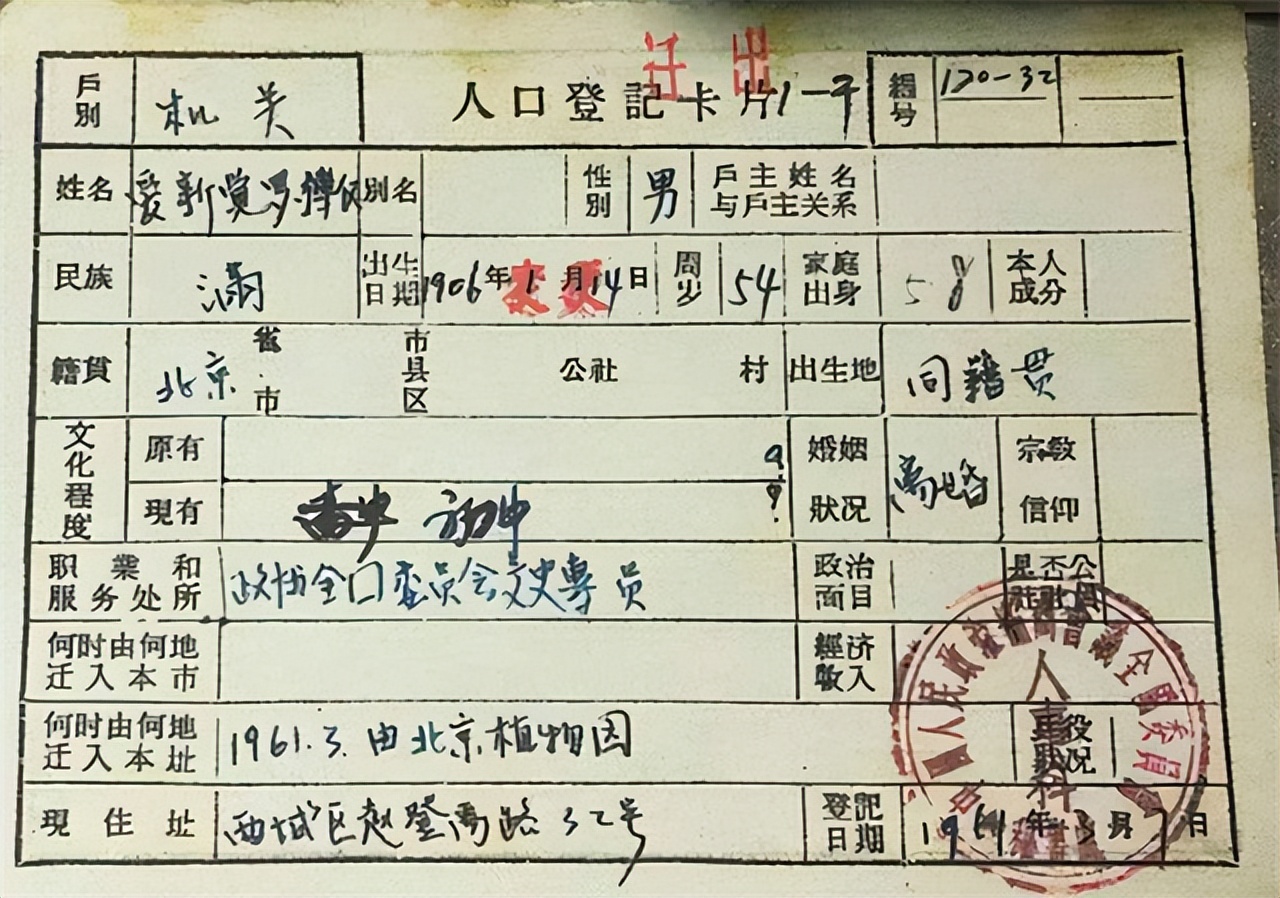 迁出
戶別 机关 人口登記卡片 1-子 編号 120-32
姓名 爱新觉罗 別名 性別 男 戶主姓名与戶主关系
民族 满 出生日期 1906年1月14日 变更 周岁 54 家庭出身 本人成分
籍貫 北京 省市 市县区 公社 村 出生地 同籍贯
文化程度 原有 婚姻狀况 离婚 宗教信仰
現有 初中
职業和服务处所 政协全口委员会文史專员 政治面目 是否公
何时由何地迁入本市 經济收入
何时由何地迁入本址 1961.3.由北京植物园 役狀况
現住址 西城区赵登禹路32号 登記日期 年3月 日
中國人民政治協商會議全國委員會
人事科